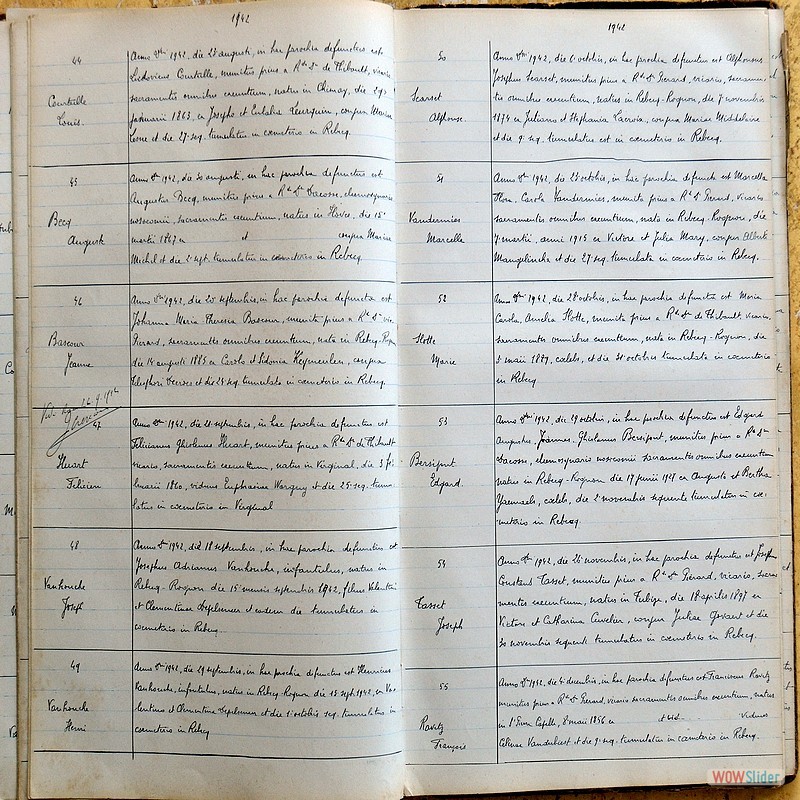 1942
44
Courtalle
Louis.
Anno Dni 1942, die augusti, in hac parochia defunctus est
Ludovicus Courtalle, munitus prius a Rdo Do de Thibault, vicario,
sacramentis omnibus exeuntium, natus in Chimay, die 29
januarii 1863 ex Josepho et Eulalia conjux Mariae
et die 27 seq. tumulatus in coemeterio in Rebecq.
45
Becq
Auguste
Anno Dni 1942, die 30 augusti, in hac parochia defunctus est
Augustus Becq, munitus prius a Rdo Do Dacosse, elemosynario
nosocomii, sacramentis exeuntium, natus in die 15
martii 1867 ex et conjux Mariae
Michel et die 2 sept. tumulatus in coemeterio in Rebecq.
46
Bascour
Jeanne
Anno Dni 1942, die 20 septembris, in hac parochia defuncta est
Johanna Maria Theresia Bascour, munita prius a Rdo Do vic.
Pierard, sacramentis omnibus exeuntium, nata in Rebecq-Rognon
die 14 augusti 1885 ex Carolo et Sidonia conjux
et die 24 seq. tumulata in coemeterio in Rebecq.
47
Huart
Félicien
Anno Dni 1942, die 21 septembris, in hac parochia defunctus est
Felicianus Ghislenus Huart, munitus prius a Rdo Do de Thibault
vicario sacramentis exeuntium, natus in Virginal, die 3 fe
bruarii 1860, viduus Euphrasiae et die 25 seq. tumu-
latus in coemeterio in Virginal
48
Vanhouche
Joseph
Anno Dni 1942, die 18 septembris, in hac parochia defunctus est
Josephus Adrianus Vanhouche, infantulus, natus in
Rebecq-Rognon die 15 mensis septembris 1942, filius Valentini
et Clementinae Deplemer et eadem die tumulatus in
coemeterio in Rebecq.
49
Vanhouche
Henri
Anno Dni 1942, die 29 septembris, in hac parochia defunctus est Henricus
Vanhouche, infantulus, natus in Rebecq-Rognon die 15 sept. 1942, ex Va
lentino et Clementina Deplemer et die 1 octobris seq. tumulatus in
coemeterio in Rebecq
1942
50
Scarset
Alphonse.
Anno Dni 1942, die 6 octobris, in hac parochia defunctus est Alphonsus
Josephus Scarset, munitus prius a Rdo Do Pierard, vicario, sacramen
tis omnibus exeuntium, natus in Rebecq-Rognon, die 7 novembris
1874 ex Juliano et Stephania Lacroix, conjux Mariae Michelaire
et die 9 seq. tumulatus est in coemeterio in Rebecq.
51
Vandermies
Marcelle
Anno Dni 1942, die 23 octobris, in hac parochia defuncta est Marcella
Flora, Carola Vandermies, munita prius a Rdo Do Pierard, vicario,
sacramentis omnibus exeuntium, nata in Rebecq-Rognon, die
7 martii, anni 1915 ex Victore et Julia Mary, conjux Alberti
Mangelinckx et die 27 seq. tumulata in coemeterio in Rebecq.
52
Slotte
Marie
Anno Dni 1942, die 28 octobris, in hac parochia defuncta est Maria
Carola, Amelia Slotte, munita prius a Rdo Do de Thibault, vicario,
sacramentis omnibus exeuntium, nata in Rebecq-Rognon, die
5 maii 1879, caelebs, et die 31 octobris tumulata in coemeterio
in Rebecq
53
Bersiput
Edgard.
Anno Dni 1942, die 29 octobris, in hac parochia defunctus est Edgard
Augustus, Joannes, Ghislenus Bersiput, munitus prius a Rdo Do
Dacosse, elemosynario nosocomii sacramentis omnibus exeuntium
natus in Rebecq-Rognon die 17 1927 ex Augusto et Bertha
caelebs, die 2 novembris sequente tumulatus in coe-
meterio in Rebecq.
54
Tasset
Joseph
Anno Dni 1942, die 26 novembris, in hac parochia defunctus est Joseph
Constans Tasset, munitus prius a Rdo Do Pierard, vicario, sacra
mentis exeuntium, natus in Tubize, die 18 aprilis 1897 ex
Victore et Catharina Cuvelier, conjux Juliae Govaert et die
30 novembris sequente tumulatus in coemeterio in Rebecq.
55
Ravitz
François
Anno Dni 1942, die 6 decembris, in hac parochia defunctus est Franciscus Ravitz
munitus prius a Rdo Do Pierard, vicario sacramentis omnibus exeuntium, natus
in Capelle, 8 maii 1856 ex et viduus
Celinae Vanderhaest et die 9 seq. tumulatus in coemeterio in Rebecq.
WOWSlider